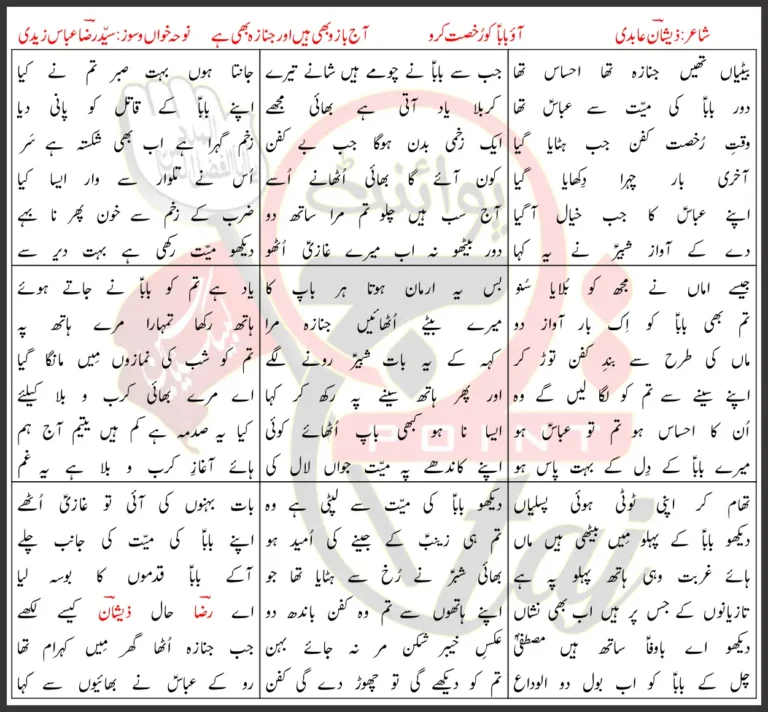 شاعر: ذیشان عابدی آؤ باباؑ کو رُخصت کرو آج بازو بھی ہیں اور جنازہ بھی ہے نوحہ خواں و سوز: سیّد رضا عباس زیدی
بیٹیاں تھیں جنازہ تھا احساس تھا
دور باباؑ کی میّت سے عباسؑ تھا
وقتِ رُخصت کفن جب ہٹایا گیا
آخری بار چہرا دِکھایا گیا
اپنے عباسؑ کا جب خیال آگیا
دے کے آواز شبیرؑ نے یہ کہا
جب سے باباؑ نے چومے ہیں شانے تیرے
کربلا یاد آتی ہے بھائی مجھے
ایک زخمی بدن ہوگا جب بے کفن
کون آئے گا بھائی اُٹھانے اُسے
آج سب ہیں چلو تم مرا ساتھ دو
دور بیٹھو نہ اب میرے غازیؑ اُٹھو
جانتا ہوں بہت صبر تم نے کیا
اپنے باباؑ کے قاتل کو پانی دیا
زخم گہرا ہے اب بھی شکستہ ہے سَر
اُس نے تلوار سے وار ایسا کیا
ضرب کے زخم سے خون پھر نا بہے
دیکھو میّت رکھی ہے بہت دیر سے
جیسے اماں نے مجھ کو بُلایا سُنو
تم بھی باباؑ کو اِک بار آواز دو
ماں کی طرح سے بندِ کفن توڑ کر
اپنے سینے سے تم کو لگا لیں گے وہ
اُن کا احساس ہو تم تو عباسؑ ہو
میرے باباؑ کے دِل کے بہت پاس ہو
بس یہ ارمان ہوتا ہر باپ کا
میرے بیٹے اُٹھائیں جنازہ مرا
کہہ کے یہ بات شبیرؑ رونے لگے
اور پھر ہاتھ سینے پہ رکھ کر کہا
ایسا نا ہو کبھی باپ اُٹھائے کوئی
اپنے کاندھے پہ میّت جواں لال کی
یاد ہے تم کو باباؑ نے جاتے ہوئے
ہاتھ رکھا تمہارا مرے ہاتھ پہ
تم کو شب کی نمازوں میں مانگا گیا
اے مرے بھائی کرب و بلا کیلئے
کیا یہ صدمہ ہے کم ہیں یتیم آج ہم
ہائے آغازِ کرب و بلا ہے یہ غم
تھام کر اپنی ٹوٹی ہوئی پسلیاں
دیکھو باباؑ کے پہلو میں بیٹھی ہیں ماں
ہائے غربت وہی ہاتھ پہلو پہ ہے
تازیانوں کے جس پر ہیں اب بھی نشاں
دیکھو اے باوفاؑ ساتھ ہیں مصطفیٰؐ
چل کے باباؑ کو اب بول دو الوداع
دیکھو باباؑ کی میّت سے لپٹی ہے وہ
تم ہی زینبؑ کے جینے کی اُمید ہو
بھائی شبرؑ نے رُخ سے ہٹایا تھا جو
اپنے ہاتھوں سے تم وہ کفن باندھ دو
عکسِ خیبر شکن مر نہ جائے بہن
تم کو دیکھے گی تو چھوڑ دے گی کفن
بات بہنوں کی آئی تو غازیؑ اُٹھے
اپنے باباؑ کی میّت کی جانب چلے
آکے باباؑ قدموں کا بوسہ لیا
اے رضا حال ذیشان کیسے لکھے
جب جنازہ اُٹھا گھر میں کہرام تھا
رو کے عباسؑ نے بھائیوں سے کہا
پوائنٹ
POINT
taj